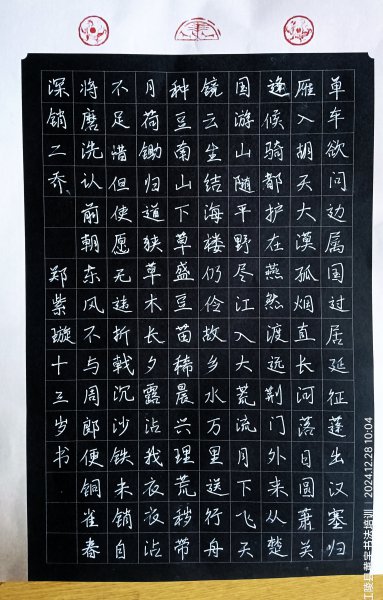 单车欲问边属国过居延征蓬出汉塞归
雁入胡天大漠孤烟直长河落日圆萧关
逢候骑都护在燕然渡远荆门外来从楚
国游山随平野尽江入大荒流月下飞天
镜云生结海楼仍怜故乡水万里送行舟
种豆南山下草盛豆苗稀晨兴理荒秽带
月荷锄归道狭草木长夕露沾我衣衣沾
不足惜但使愿无违折戟沉沙铁未销自
将磨洗认前朝东风不与周郎便铜雀春
深销二乔 郑紫璇十三岁书
江陵县书法培训 2024.12.28 10:04